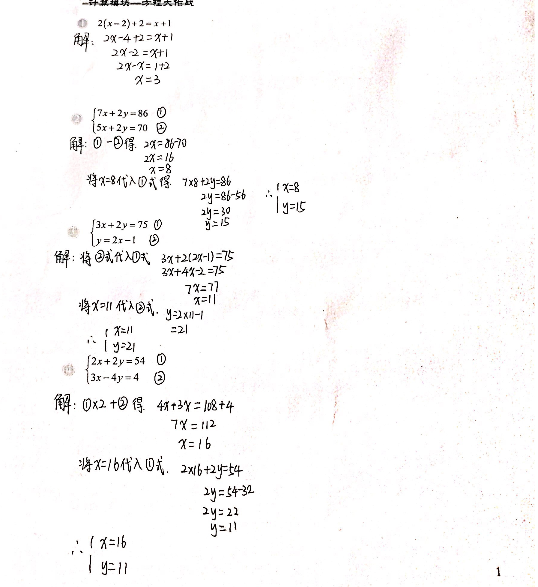 ① 2(x-2)+2=x+1
解: 2x-4+2=x+1
2x-2=x+1
2x-x=1+2
x=3
② {7x+2y=86 ①
5x+2y=70 ②
解: ①-②得: 2x=86-70
2x=16
x=8
将x=8代入①式得: 7×8+2y=86
2y=86-56
2y=30
y=15
∴ {x=8
y=15
{3x+2y=75 ①
y=2x-1 ②
解: 将②式代入①式. 3x+2(2x-1)=75
3x+4x-2=75
7x=77
x=11
将x=11代入②式. y=2×11-1
=21
∴ {x=11
y=21
{2x+2y=54 ①
3x-4y=4 ②
解: ①×2+②得: 4x+3x=108+4
7x=112
x=16
将x=16代入①式. 2×16+2y=54
2y=54-32
2y=22
y=11
∴ {x=16
y=11
1